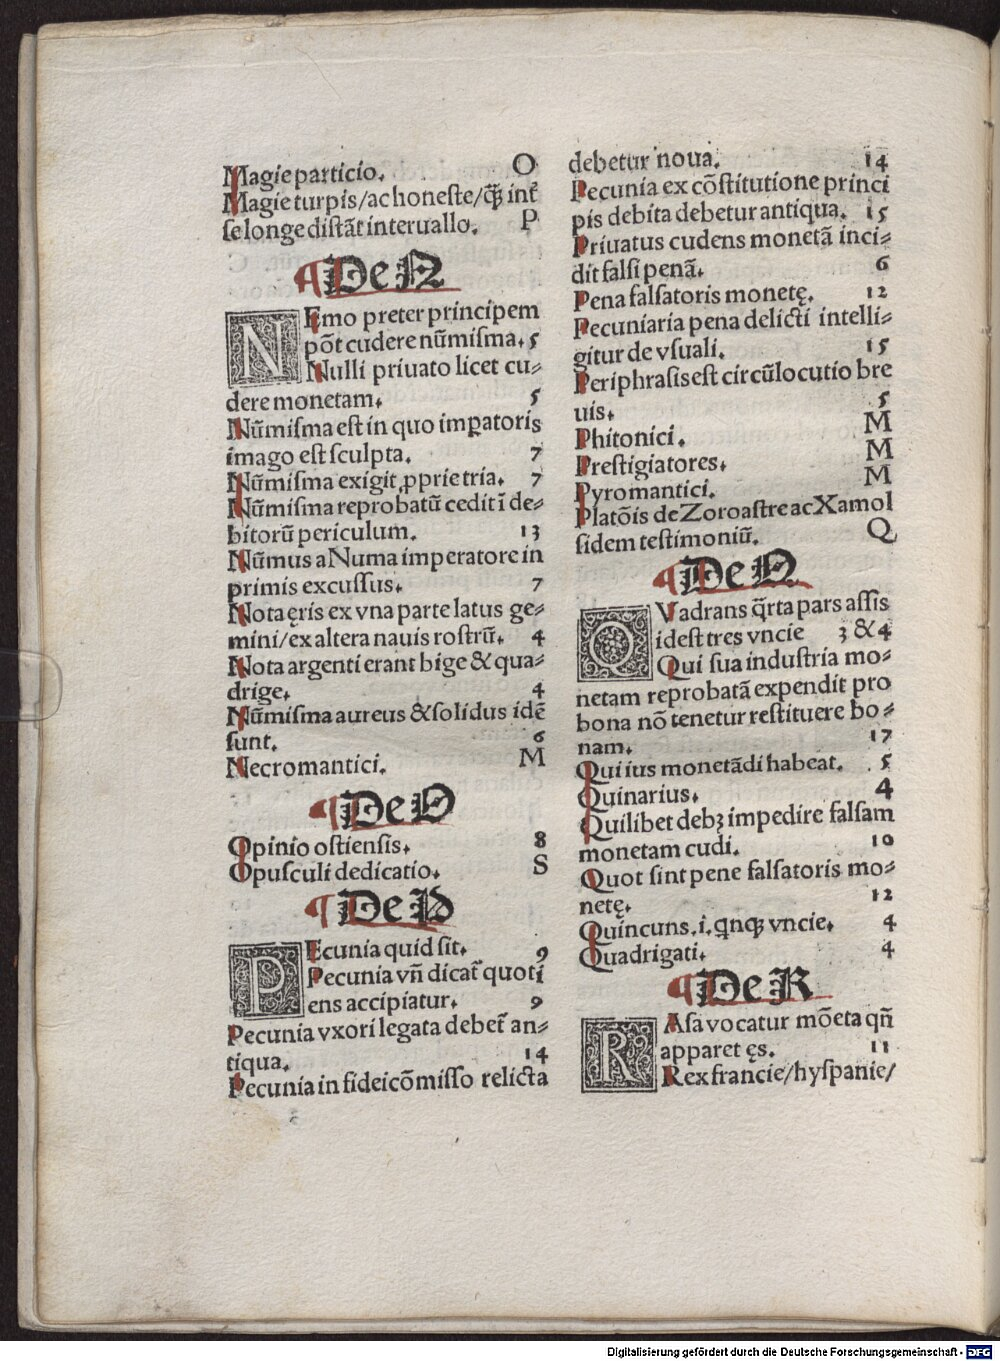 Magie particio. O
Magie turpis/ac honeste/q̃ꝫ int̃
se longe distãt interuallo. P
¶ De N
NEmo preter principem
põt cudere nũmisma. 5
Nulli priuato licet cu⸗
dere monetam. 5
Nũmisma est in quo imꝑatoris
imago est sculpta. 7
Nũmisma exigit ꝓprie tria. 7
Nũmisma reprobatũ cedit ĩ de⸗
bitorũ periculum. 13
Nũmus a Numa imperatore in
primis excussus. 7
Nota ęris ex vna parte latus ge⸗
mini/ex altera nauis rostrũ. 4
Nota argenti erant bige & qua⸗
drige. 4
Nũmisma aureus & solidus idẽ
sunt. 6
Necromantici. M
¶ De O
Opinio ostiensis. 8
Opusculi dedicatio. S
¶ De P
PEcunia quid sit. 9
Pecunia vñ dicat̃ quoti
ens accipiatur. 9
Pecunia vxori legata debet̃ an⸗
tiqua. 14
Pecunia in fideicõmisso relicta
debetur noua. 14
Pecunia ex cõstitutione princi
pis debita debetur antiqua. 15
Priuatus cudens monetã inci⸗
dit falsi penã. 6
Pena falsatoris monetę. 12
Pecuniaria pena delicti intelli⸗
gitur de vsuali. 15
Periphrasis est circũlocutio bre
uis. 5
Phitonici. M
Prestigiatores. M
Pyromantici. M
Platõis de Zoroastre ac Xamol
sidem testimoniũ. Q
¶ De Q
QVadrans q̃rta pars assis
idest tres vncie 3 & 4
Qui sua industria mo⸗
netam reprobatã expendit pro
bona nõ tenetur restituere bo⸗
nam. 17
Qui ius monetãdi habeat. 5
Quinarius. 4
Quilibet debꝫ impedire falsam
monetam cudi. 10
Quot sint pene falsatoris mo⸗
netę. 12
Quincuns.i.qnqꝫ vncie. 4
Quadrigati. 4
¶ De R
RAsa vocatur mõeta qñ
apparet ęs. 11
Rex francie/hyspanie/
Digitalisierung gefördert durch die Deutsche Forschungsgemeinschaft - DFG